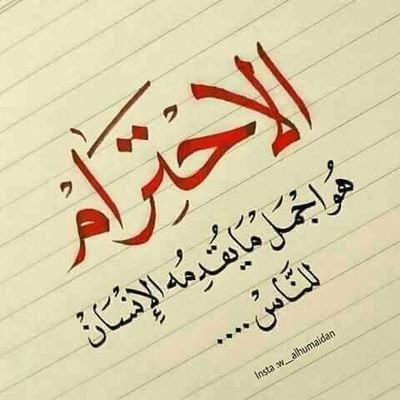 الاحْتِرَام
هُوَ اجْمَل مَا يُقدِمُه الإِنْسَانْ
للنَّاسْ.....
Insta :w__alhumaidan